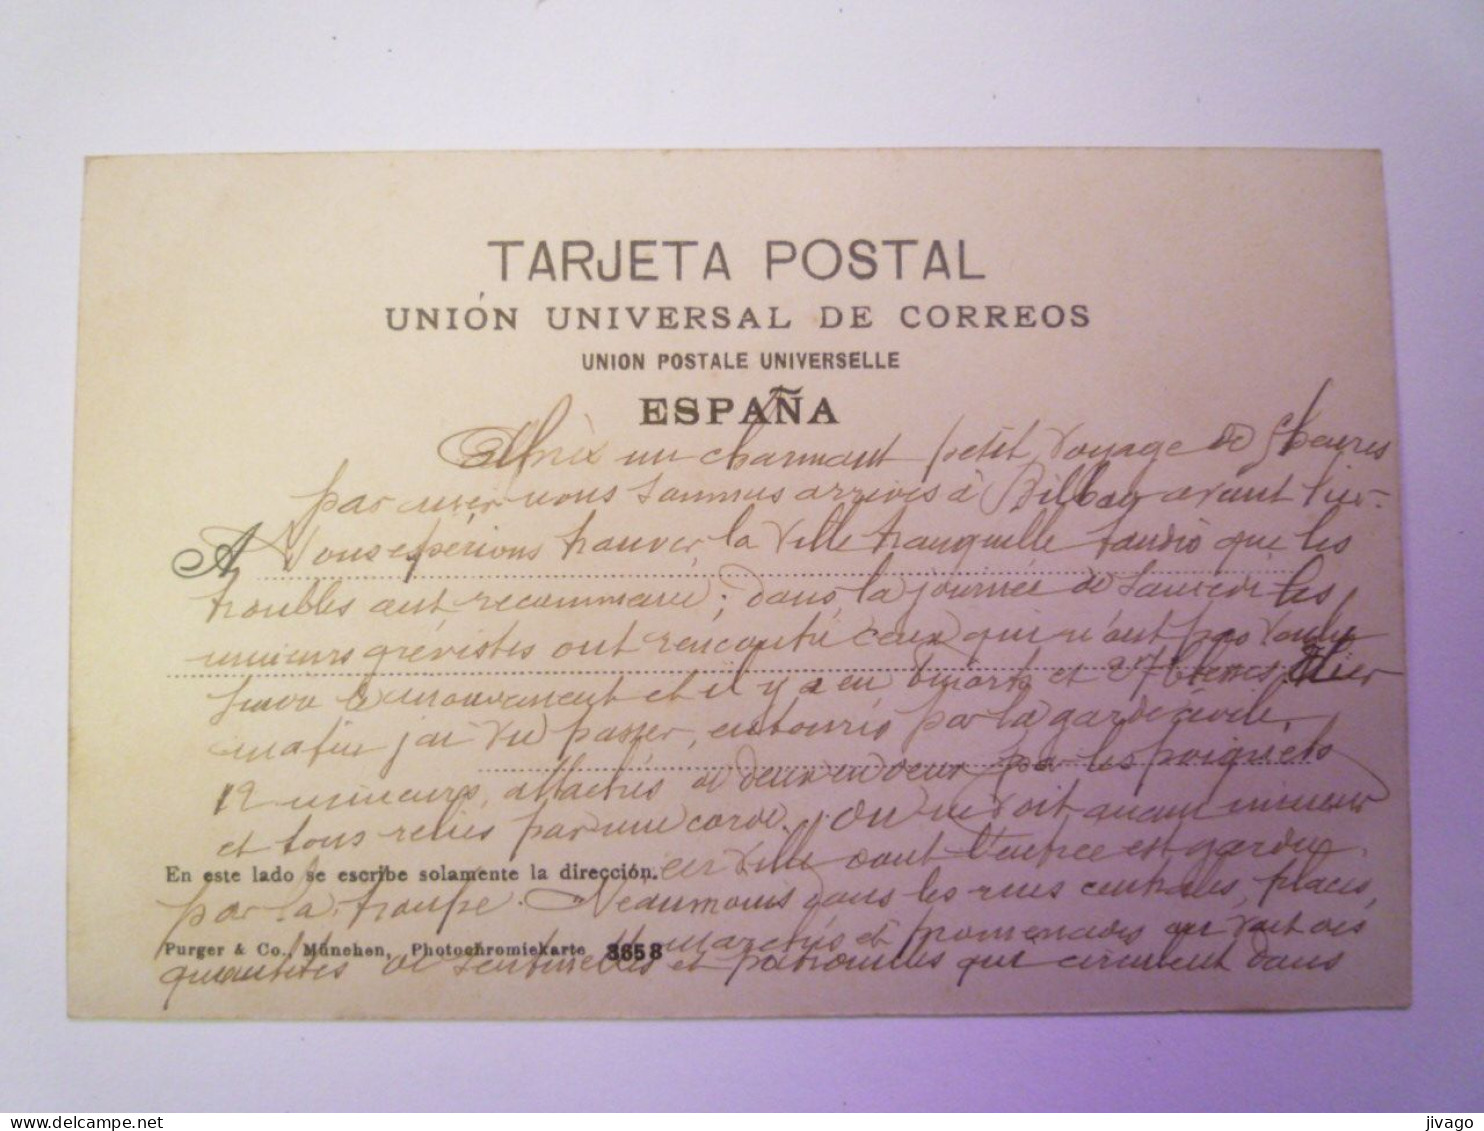 TARJETA POSTAL
UNIÓN UNIVERSAL DE CORREOS
UNION POSTALE UNIVERSELLE
ESPAÑA
Après un charmant petit voyage de heures
par mer nous sommes arrivés à Bilbao avant hier.
A Nous espérions trouver la ville tranquille tandis que les
troubles ont recommencé; dans la journée de Samedi les
mineurs grévistes ont rencontré ceux qui n'ont pas voulu
suivre le mouvement et il y a eu morts et blessés. Hier
matin j'ai vu passer, entourés par la garde civile,
12 mineurs, attachés de deux en deux par les poignets
et tous reliés par une corde. On ne voit aucun mineur
en ville dont l'entrée est gardée
En este lado se escribe solamente la dirección.
par la troupe. Néanmoins dans les rues centrales, places,
Purger & Co., München, Photochromiekarte 3658
marchés et promenades on voit des
quantités de sentinelles et patrouilles qui circulent dans
jivago
delcampe.net